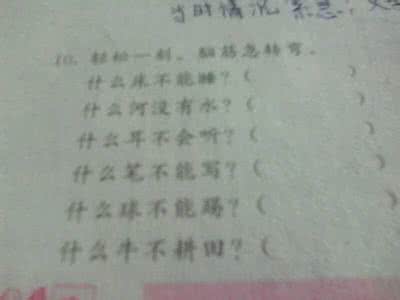 当时情况紧急,
10. 轻松一刻。脑筋急转弯。
什么床不能睡?( )
什么河没有水?( )
什么耳不会听?( )
什么笔不能写?(
什么球不能踢?(
什么牛不耕田?(